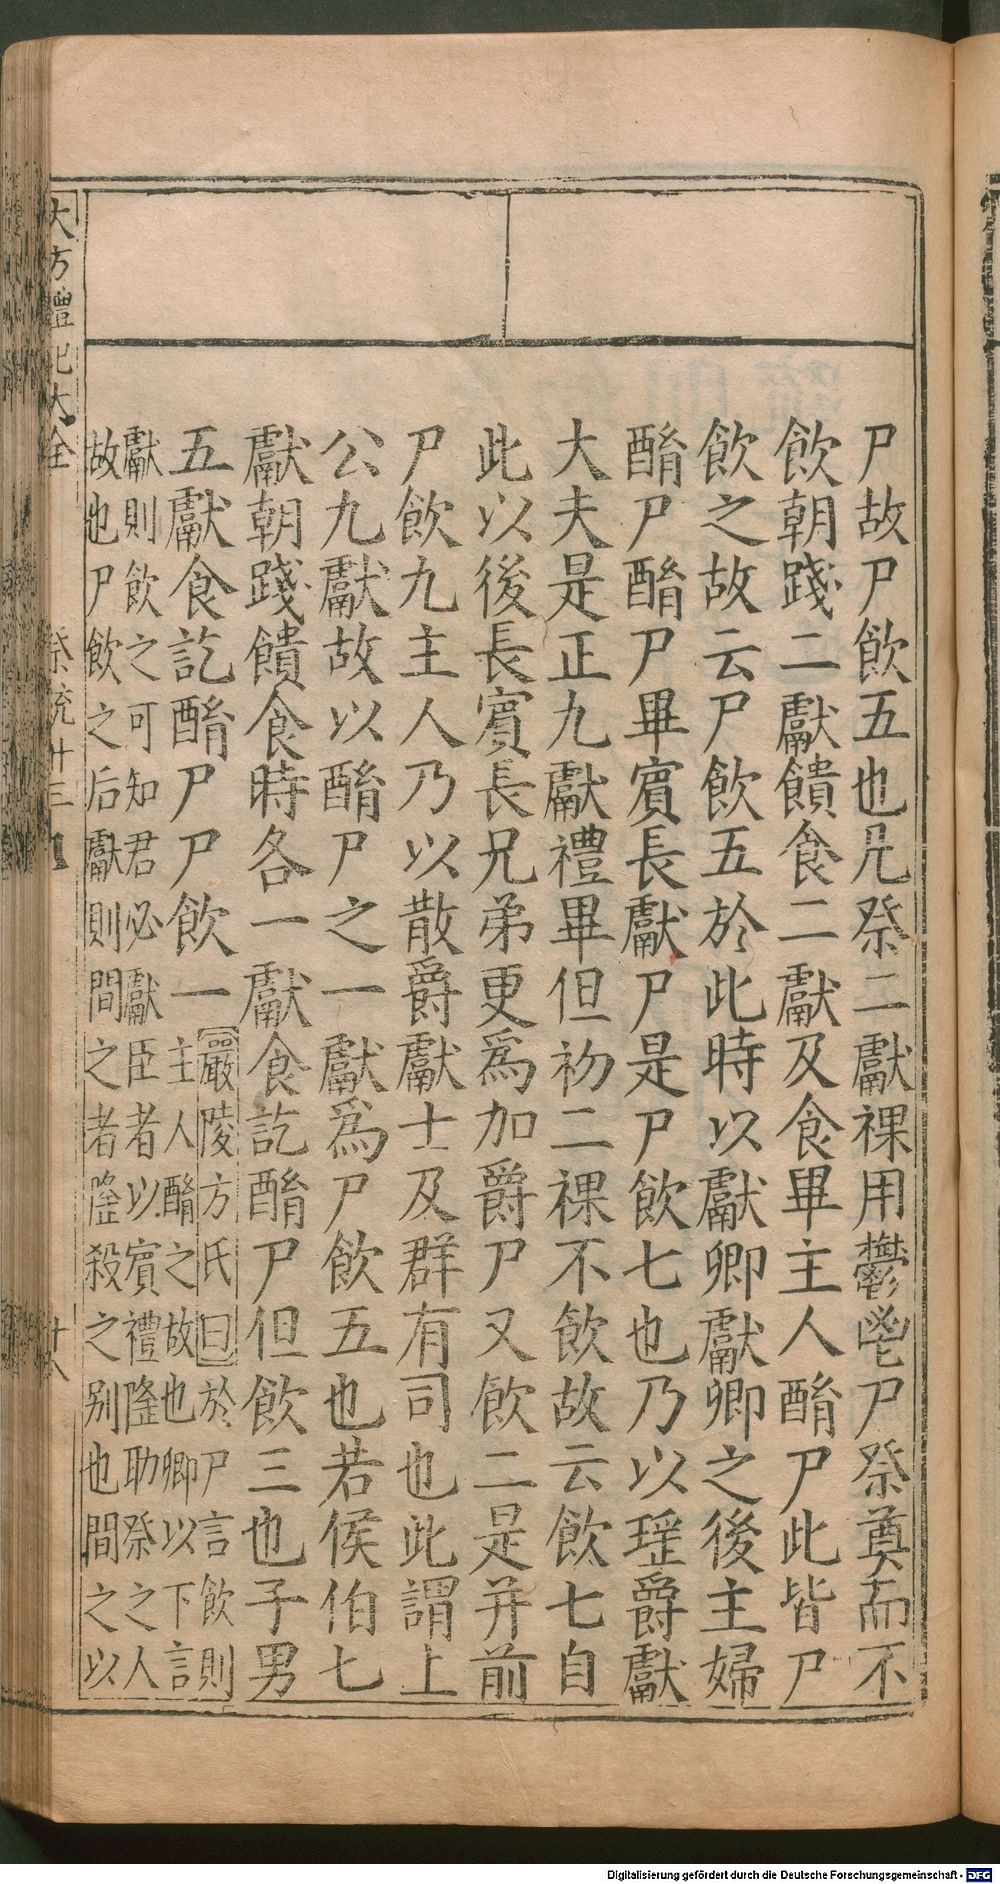 尸故尸飲五也凡祭二獻祼用鬱鬯尸祭奠而不
飲朝踐二獻饋食二獻及食畢主人酳尸此皆尸
飲之故云尸飲五於此時以獻卿獻卿之後主婦
酳尸酳尸畢賓長獻尸是尸飲七也乃以瑤爵獻
大夫是正九獻禮畢但初二祼不飲故云飲七自
此以後長賓長兄弟更爲加爵尸又飲二是并前
尸飲九主人乃以散爵獻士及群有司也此謂上
公九獻故以酳尸之一獻爲尸飲五也若侯伯七
獻朝踐饋食時各一獻食訖酳尸但飲三也子男
五獻食訖酳尸尸飲一
嚴陵方氏曰於尸言飲則
主人酳之故也卿以下言
獻則飲之可知君必獻臣者以賓禮隆助祭之人
故也尸飲之后獻則間之者隆殺之別也間之以
大方禮記大全 祭統廿三 十八
Digitalisierung gefördert durch die Deutsche Forschungsgemeinschaft - DFG